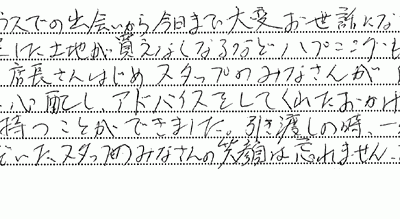 ウスでの出会いから今日まで大変お世話にな
した土地が買えなくなるなどハプニングも
店長さんはじめスタッフのみなさんが
心配し、アドバイスをしてくれたおかげ
持つことができました。引き渡しの時、一
いた、スタッフのみなさんの笑顔は忘れません。